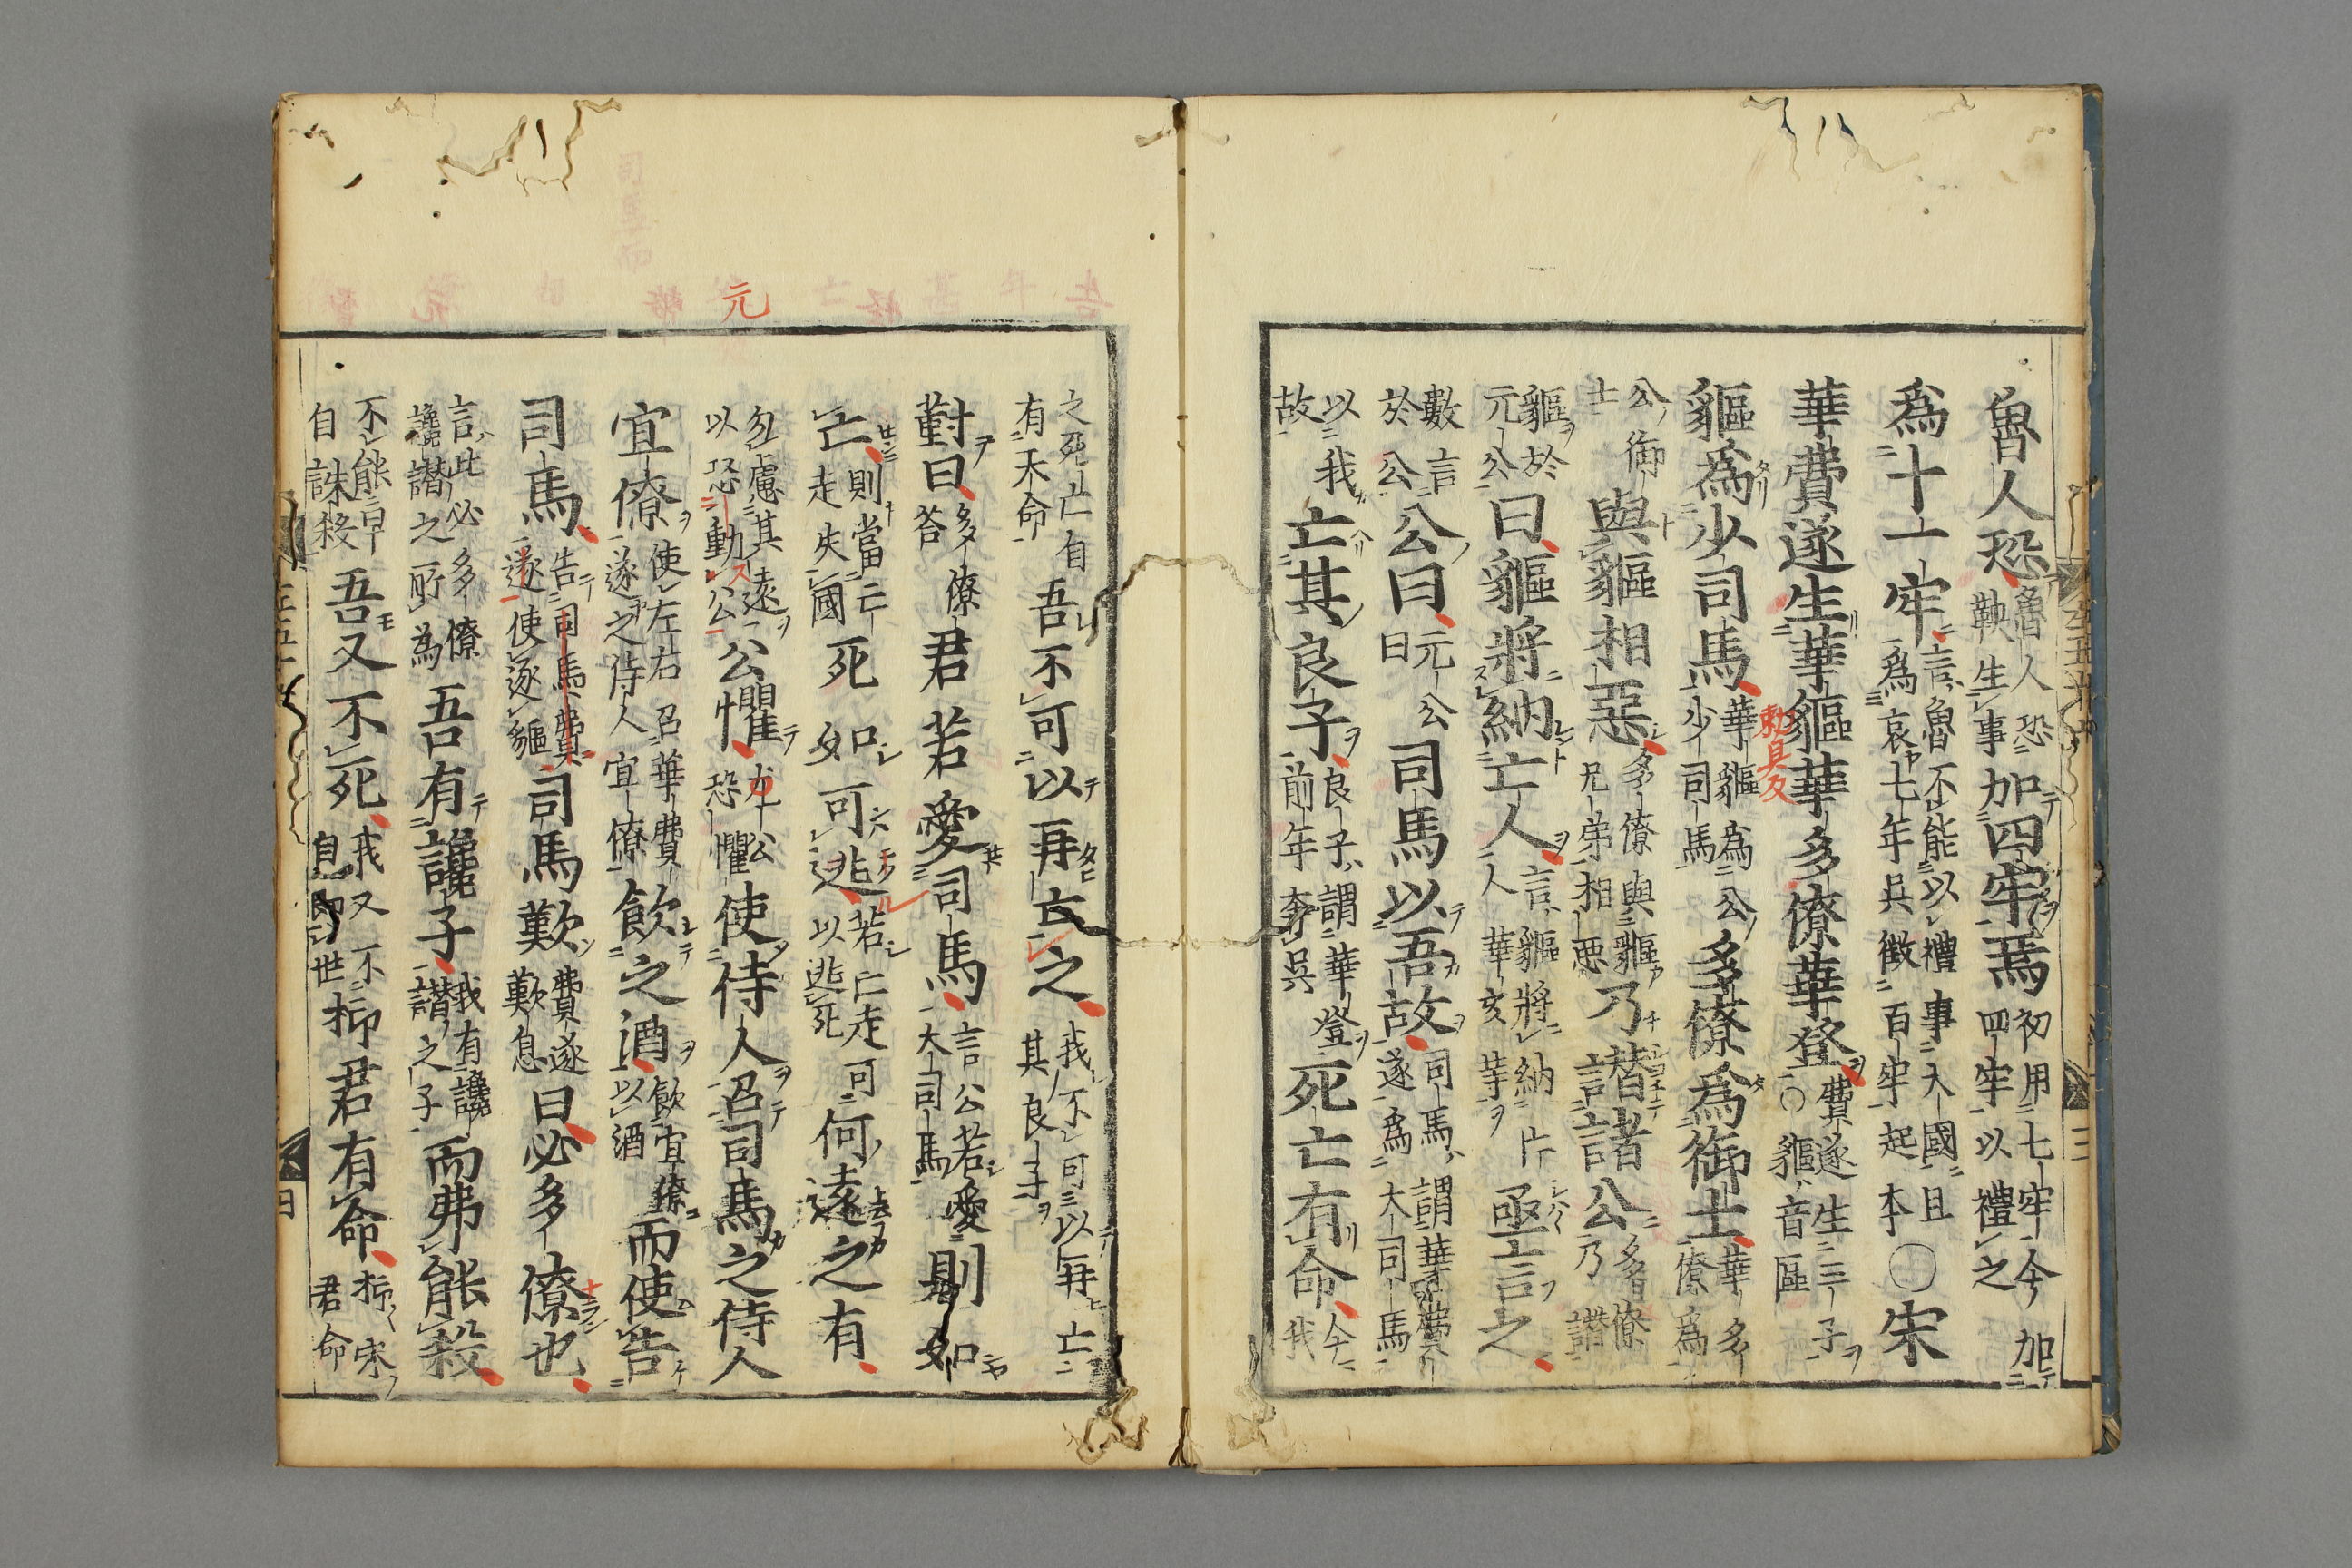 魯人恐魯人恐鞅生事加四牢焉初用七牢今加四牢以禮之
爲十一牢言魯不能以禮事大國且爲哀七年呉徴百牢起本〇宋
華費遂生華貙華多僚華登費遂生三子〇貙音區
貙爲少司馬華貙爲公少司馬多僚爲御士華多僚爲
公御士與貙相惡多僚與貙兄弟相惡乃譖諸公多僚乃譖
貙於元公曰貙將納亡人言貙將納人華亥等亟言之
數言於公公曰元公曰司馬以吾故司馬謂華費遂爲大司馬
以我故亡其良子良子謂華登前年奔呉死亡有命今我
之死亡自有天命吾不可以再亡之我不可以再亡其良子
對曰多僚荅君若愛司馬言公若愛大司馬則如
亡則當亡走失國死如可逃若亡走可以逃死何遠之有
勿慮其遠以恐動公公懼元公恐懼使侍人召司馬之侍人
宜僚使左右召華費遂之侍人宜僚飲之酒飲宜僚以酒而使告
司馬告司馬費遂使逐貙司馬歎費遂歎息曰必多僚也
言此必多僚讒譖之所爲吾有讒子我有讒譖之子而弗能殺
不能早自誅殺吾又不死我又不自即世抑君有命抑宋君命
元
三